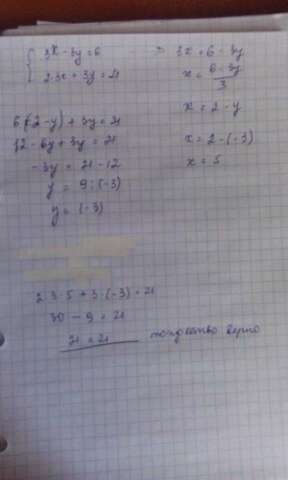 { 3x - 3y = 6
2·3x + 3y = 21
⇒ 3x = 6 - 3y
x = (6 - 3y)/3
x = 2 - y
6(2-y) + 3y = 21
12 - 6y + 3y = 21
x = 2 - (-3)
-3y = 21 - 12
x = 5
y = 9 : (-3)
y = (-3)
2·3·5 + 3·(-3) = 21
30 - 9 = 21
21 = 21 тождество верно